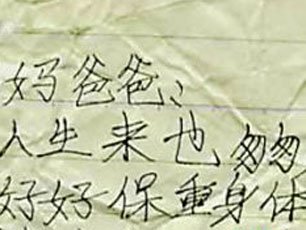 妈爸爸、
人生来也匆匆
好好保重身体